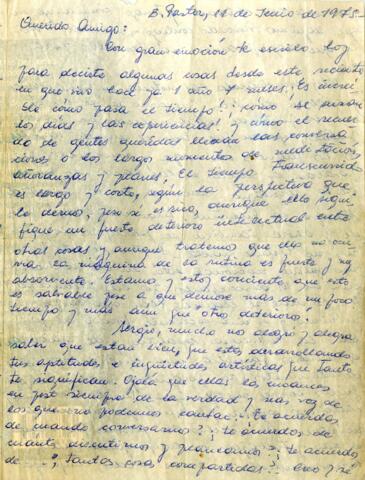 B. Pastor, 11 de Junio de 1975.-
Querido Amigo:
Con gran emoción te escribo hoy
para decirte algunas cosas desde este recinto
en que vivo hace ya 1 año 7 meses. ¡Es increí
ble cómo pasa el tiempo!; ¡cómo se
los días! y las experiencias! y cómo el recuer
do de gentes queridas llenan las conversa
ciones o los largos momentos de meditación,
añoranzas y planes. El tiempo transcurrido
es largo y corto, según la perspectiva que
le demos, pero sí es rico, aunque ello signi
fique un fuerte deterioro intelectual entre
otras cosas y aunque tratemos que ello no ocu
rra la máquina de la rutina es fuerte y muy
absorvente. Estamos y estoy conciente que esto
es salvable pese a que demore más de un poco
tiempo y más aún que otros deterioros.
Sergio, mucho nos alegró y alegra
saber que están bien, que estés desarrollando
tus aptitudes e inquietudes artísticas que tanto
te significan. Ojalá que ellas las
en pos siempre de la verdad y seas voz de
los que no podemos cantar. ¿Te acuerdas
de cuando conversamos?; ¿te acuerdas de
cuánto discutimos y planeamos?; ¿te acuerdas
de ¡tantas cosas compartidas!? Creo y sé